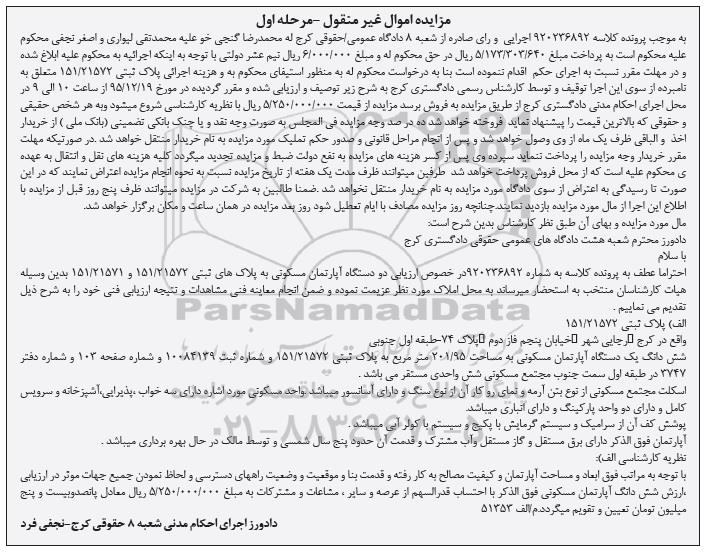 مزایده اموال غیر منقول -مرحله اول
به موجب پرونده کلاسه ۹۲۰۲۳۶۸۹۲ اجرایی و رای صادره از شعبه ۸ دادگاه عمومی/حقوقی کرج له محمدرضا گنجی خو علیه محمدتقی لیواری و اصغر نجفی محکوم
علیه محکوم است به پرداخت مبلغ ۵/۱۷۳/۳۰۳/۶۴۰ ریال در حق محکوم له و مبلغ ۶/۰۰۰/۰۰۰ ریال نیم عشر دولتی با توجه به اینکه اجرائیه به محکوم علیه ابلاغ شده
و در مهلت مقرر نسبت به اجرای حکم اقدام ننموده است بنا به درخواست محکوم له به منظور استیفای محکوم به و هزینه اجرائی پلاک ثبتی ۱۵۱/۲۱۵۷۲ متعلق به
نامبرده از سوی این اجرا توقیف و توسط کارشناس رسمی دادگستری کرج به شرح زیر توصیف و ارزیابی شده و مقرر گردیده در مورخ ۹۵/۱۲/۱۹ از ساعت ۱۰ الی ۹ در
محل اجرای احکام مدنی دادگستری کرج از طریق مزایده به فروش برسد مزایده از قیمت ۵/۲۵۰/۰۰۰/۰۰۰ ریال با نظریه کارشناسی شروع میشود وبه هر شخص حقیقی
و حقوقی که بالاترین قیمت را پیشنهاد نماید فروخته خواهد شد ده در صد وجه مزایده فی المجلس به صورت وجه نقد و یا چنک بانکی تضمینی (بانک ملی ) از خریدار
اخذ و الباقی ظرف یک ماه از وی وصول خواهد شد و پس از انجام مراحل قانونی و صدور حکم تملیک مورد مزایده به نام خریدار منتقل خواهد شد .در صورتیکه مهلت
مقرر خریدار وجه مزایده را پرداخت ننماید سپرده وی پس از کسر هزینه های مزایده به نفع دولت ضبط و مزایده تجدید میگردد کلیه هزینه های نقل و انتقال به عهده
ی محکوم علیه است که از محل فروش پرداخت خواهد شد طرفین میتوانند ظرف مدت یک هفته از تاریخ مزایده نسبت به نحوه انجام مزایده اعتراض نمایند که در این
صورت تا رسیدگی به اعتراض از سوی دادگاه مورد مزایده به نام خریدار منتقل نخواهد شد .ضمنا طالبین به شرکت در مزایده میتوانند ظرف پنج روز قبل از مزایده با
اطلاع این اجرا از مال مورد مزایده بازدید نمایند.چنانچه روز مزایده مصادف با ایام تعطیل شود روز بعد مزایده در همان ساعت و مکان برگزار خواهد شد.
مال مورد مزایده و بهای آن طبق نظر کارشناس بدین شرح است:
دادورز محترم شعبه هشت دادگاه های عمومی حقوقی دادگستری کرج
با سلام
احتراما عطف به پرونده کلاسه به شماره ۹۲۰۲۳۶۸۹۲در خصوص ارزیابی دو دستگاه آپارتمان مسکونی به پلاک های ثبتی ۱۵۱/۲۱۵۷۲ و ۱۵۱/۲۱۵۷۱ بدین وسیله
هیات کارشناسان منتخب به استحضار میرساند به محل املاک مورد نظر عزیمت نموده و ضمن انجام معاینه فنی مشاهدات و نتیجه ارزیابی فنی خود را به شرح ذیل
تقدیم می نماییم .
الف) پلاک ثبتی ۱۵۱/۲۱۵۷۲
واقع در کرج رجایی شهر خیابان پنجم فاز دوم پلاک ۷۴-طبقه اول جنوبی
شش دانگ یک دستگاه آپارتمان مسکونی به مساحت ۲۰۱/۹۵ متر مربع به پلاک ثبتی ۱۵۱/۲۱۵۷۲ و شماره ثبت ۱۰۰۸۴۱۳۹ و شماره صفحه ۱۰۳ و شماره دفتر
۳۷۴۷ در طبقه اول سمت جنوب مجتمع مسکونی شش واحدی مستقر می باشد .
اسکلت مجتمع مسکونی از نوع بتن آرمه و نمای رو کار آن از نوع سنگ و دارای آسانسور میباشد .واحد مسکونی مورد اشاره دارای سه خواب ،پذیرایی،آشپزخانه و سرویس
کامل و دارای دو واحد پارکینگ و دارای آنباری میباشد.
پوشش کف آن از سرامیک و سیستم گرمایش با پکیج و سیستم با کولر آبی میباشد .
آپارتمان فوق الذکر دارای برق مستقل و گاز مستقل وآب مشترک و قدمت آن حدود پنج سال شمسی و توسط مالک در حال بهره برداری میباشد .
نظریه کارشناسی الف):
با توجه به مراتب فوق ابعاد و مساحت آپارتمان و کیفیت مصالح به کار رفته و قدمت بنا و موقعیت و وضعیت راههای دسترسی و لحاظ نمودن جمیع جهات موثر در ارزیابی
،ارزش شش دانگ آپارتمان مسکونی فوق الذکر با احتساب قدرالسهم از عرصه و سایر ، مشاعات و مشترکات به مبلغ ۵/۲۵۰/۰۰۰/۰۰۰ ریال معادل پانصدوبیست و پنج
میلیون تومان تعیین و تقویم میگردد.م/الف ۵۱۳۵۳
دادورز اجرای احکام مدنی شعبه ۸ حقوقی کرج-نجفی فرد
ParsNamadData
۰۲۱-۸۸۳۴۹۶۷۰-۵